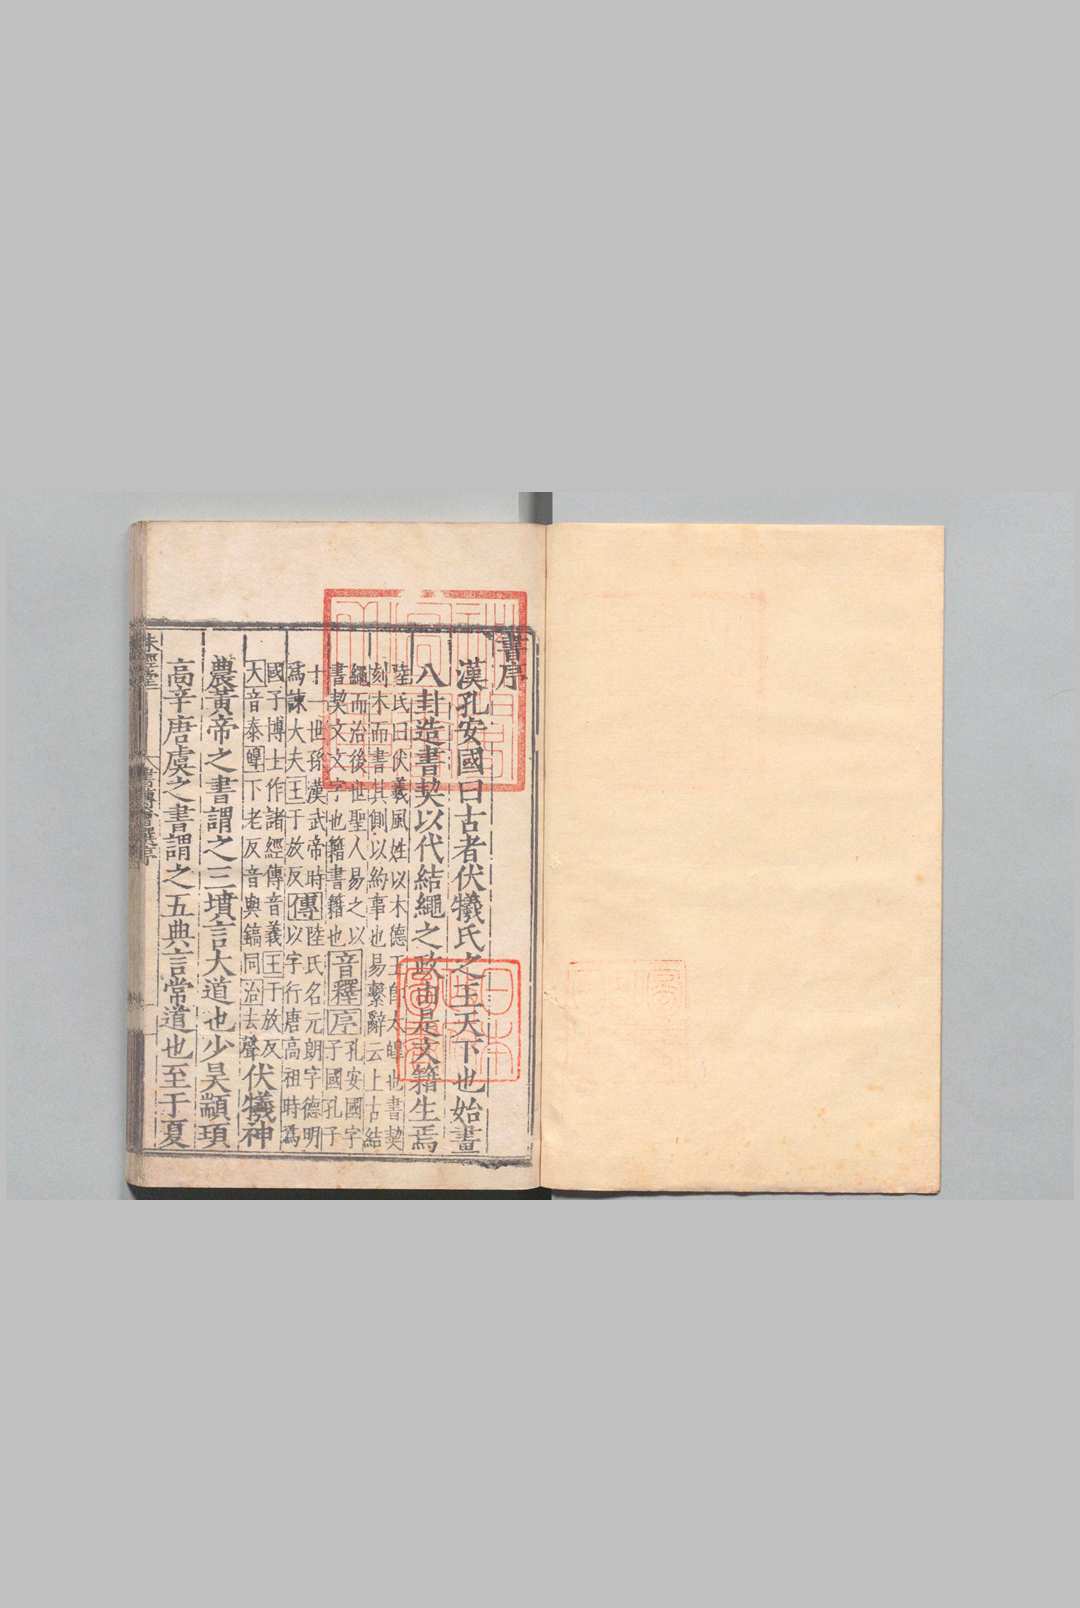 書序
漢孔安國曰古者伏犧氏之王天下也始畫
八卦造書契以代結繩之政由是文籍生焉
陸氏曰伏羲風姓以木德王即太皥也書契
刻木而書其側以約事也易繫辭云上古結
繩而治後世聖人易之以
書契文文字也籍書籍也
音釋
序子國孔子
孔安國字
十一世孫漢武帝時傳陸氏名元朗字德明
爲諫大夫王于放反以字行唐高祖時爲
國子博士作諸經傳音義王于放反
大音泰皥下老反音與鎬同治去聲
伏犧神
農黃帝之書謂之三墳言大道也少昊顓頊
高辛唐虞之書謂之五典言常道也至于夏